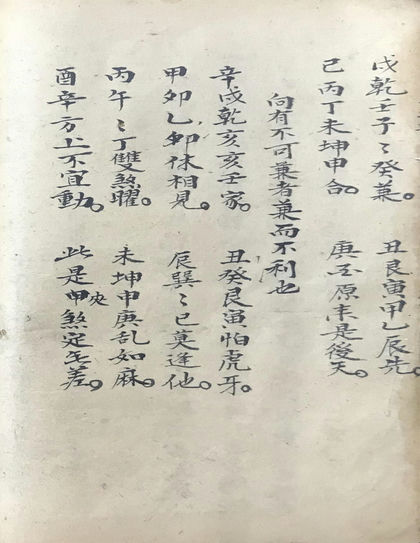 戌乾壬子〻癸兼〻。丑艮寅甲乙辰先。
巳丙丁未坤申合。庚酉原来是後天。
向有不可兼者兼而不利也
辛戌乾亥亥壬家。丑癸艮寅怕虎牙。
甲卯乙卯休相見。辰巽〻巳莫逢他。
丙午〻丁雙煞曜。未坤申庚乱如麻。
酉辛方上不宜動。此是甲煞定无差。